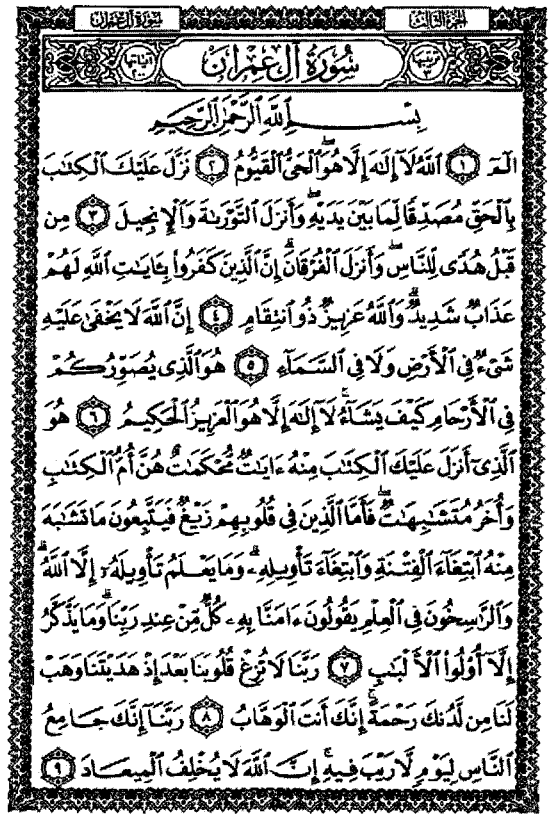 الجزء الثالث
سورة آل عمران
سُورَةُ آلِ عِمْرَانَ
بِسْمِ اللَّهِ الرَّحْمَٰنِ الرَّحِيمِ
الٓمٓ ١ ٱللَّهُ لَآ إِلَٰهَ إِلَّا هُوَ ٱلْحَىُّ ٱلْقَيُّومُ ٢ نَزَّلَ عَلَيْكَ ٱلْكِتَٰبَ
بِٱلْحَقِّ مُصَدِّقًا لِّمَا بَيْنَ يَدَيْهِ وَأَنزَلَ ٱلتَّوْرَىٰةَ وَٱلْإِنجِيلَ ٣ مِن
قَبْلُ هُدًى لِّلنَّاسِ وَأَنزَلَ ٱلْفُرْقَانَ ۗ إِنَّ ٱلَّذِينَ كَفَرُوا۟ بِـَٔايَٰتِ ٱللَّهِ لَهُمْ
عَذَابٌ شَدِيدٌ ۗ وَٱللَّهُ عَزِيزٌ ذُو ٱنتِقَامٍ ٤ إِنَّ ٱللَّهَ لَا يَخْفَىٰ عَلَيْهِ
شَىْءٌ فِى ٱلْأَرْضِ وَلَا فِى ٱلسَّمَآءِ ٥ هُوَ ٱلَّذِى يُصَوِّرُكُمْ
فِى ٱلْأَرْحَامِ كَيْفَ يَشَآءُ ۚ لَآ إِلَٰهَ إِلَّا هُوَ ٱلْعَزِيزُ ٱلْحَكِيمُ ٦ هُوَ
ٱلَّذِىٓ أَنزَلَ عَلَيْكَ ٱلْكِتَٰبَ مِنْهُ ءَايَٰتٌ مُّحْكَمَٰتٌ هُنَّ أُمُّ ٱلْكِتَٰبِ
وَأُخَرُ مُتَشَٰبِهَٰتٌ ۖ فَأَمَّا ٱلَّذِينَ فِى قُلُوبِهِمْ زَيْغٌ فَيَتَّبِعُونَ مَا تَشَٰبَهَ
مِنْهُ ٱبْتِغَآءَ ٱلْفِتْنَةِ وَٱبْتِغَآءَ تَأْوِيلِهِۦ ۗ وَمَا يَعْلَمُ تَأْوِيلَهُۥٓ إِلَّا ٱللَّهُ ۗ
وَٱلرَّٰسِخُونَ فِى ٱلْعِلْمِ يَقُولُونَ ءَامَنَّا بِهِۦ كُلٌّ مِّنْ عِندِ رَبِّنَا ۗ وَمَا يَذَّكَّرُ
إِلَّآ أُو۟لُوا۟ ٱلْأَلْبَٰبِ ٧ رَبَّنَا لَا تُزِغْ قُلُوبَنَا بَعْدَ إِذْ هَدَيْتَنَا وَهَبْ
لَنَا مِن لَّدُنكَ رَحْمَةً ۚ إِنَّكَ أَنتَ ٱلْوَهَّابُ ٨ رَبَّنَآ إِنَّكَ جَامِعُ
ٱلنَّاسِ لِيَوْمٍ لَّا رَيْبَ فِيهِ ۚ إِنَّ ٱللَّهَ لَا يُخْلِفُ ٱلْمِيعَادَ ٩